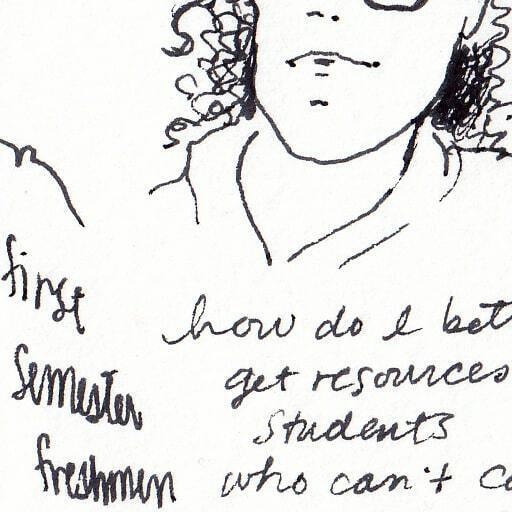 first
semester
freshmen
how do I bet
get resources
students
who can't co